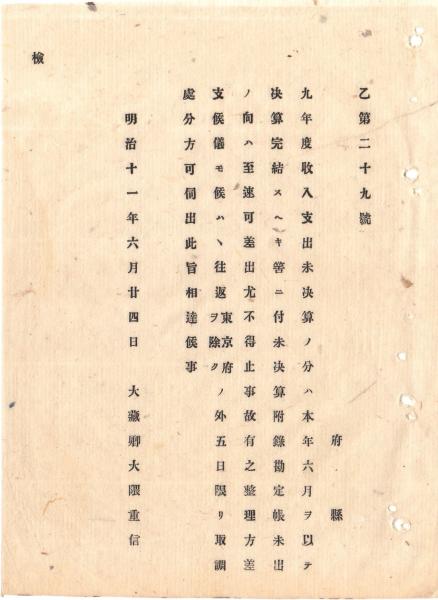 乙第二十九號
府縣
九年度收入支出未決算ノ分ハ本年六月ヲ以テ
決算完結スヘキ筈ニ付未決算附錄勘定帳未出
ノ向ハ至速可差出尤不得止事故有之整理方差
支候儀モ候ハヽ往返東京府ヲ除クノ外五日限リ取調
處分方可伺出此旨相達候事
明治十一年六月廿四日 大藏卿大隈重信
檢